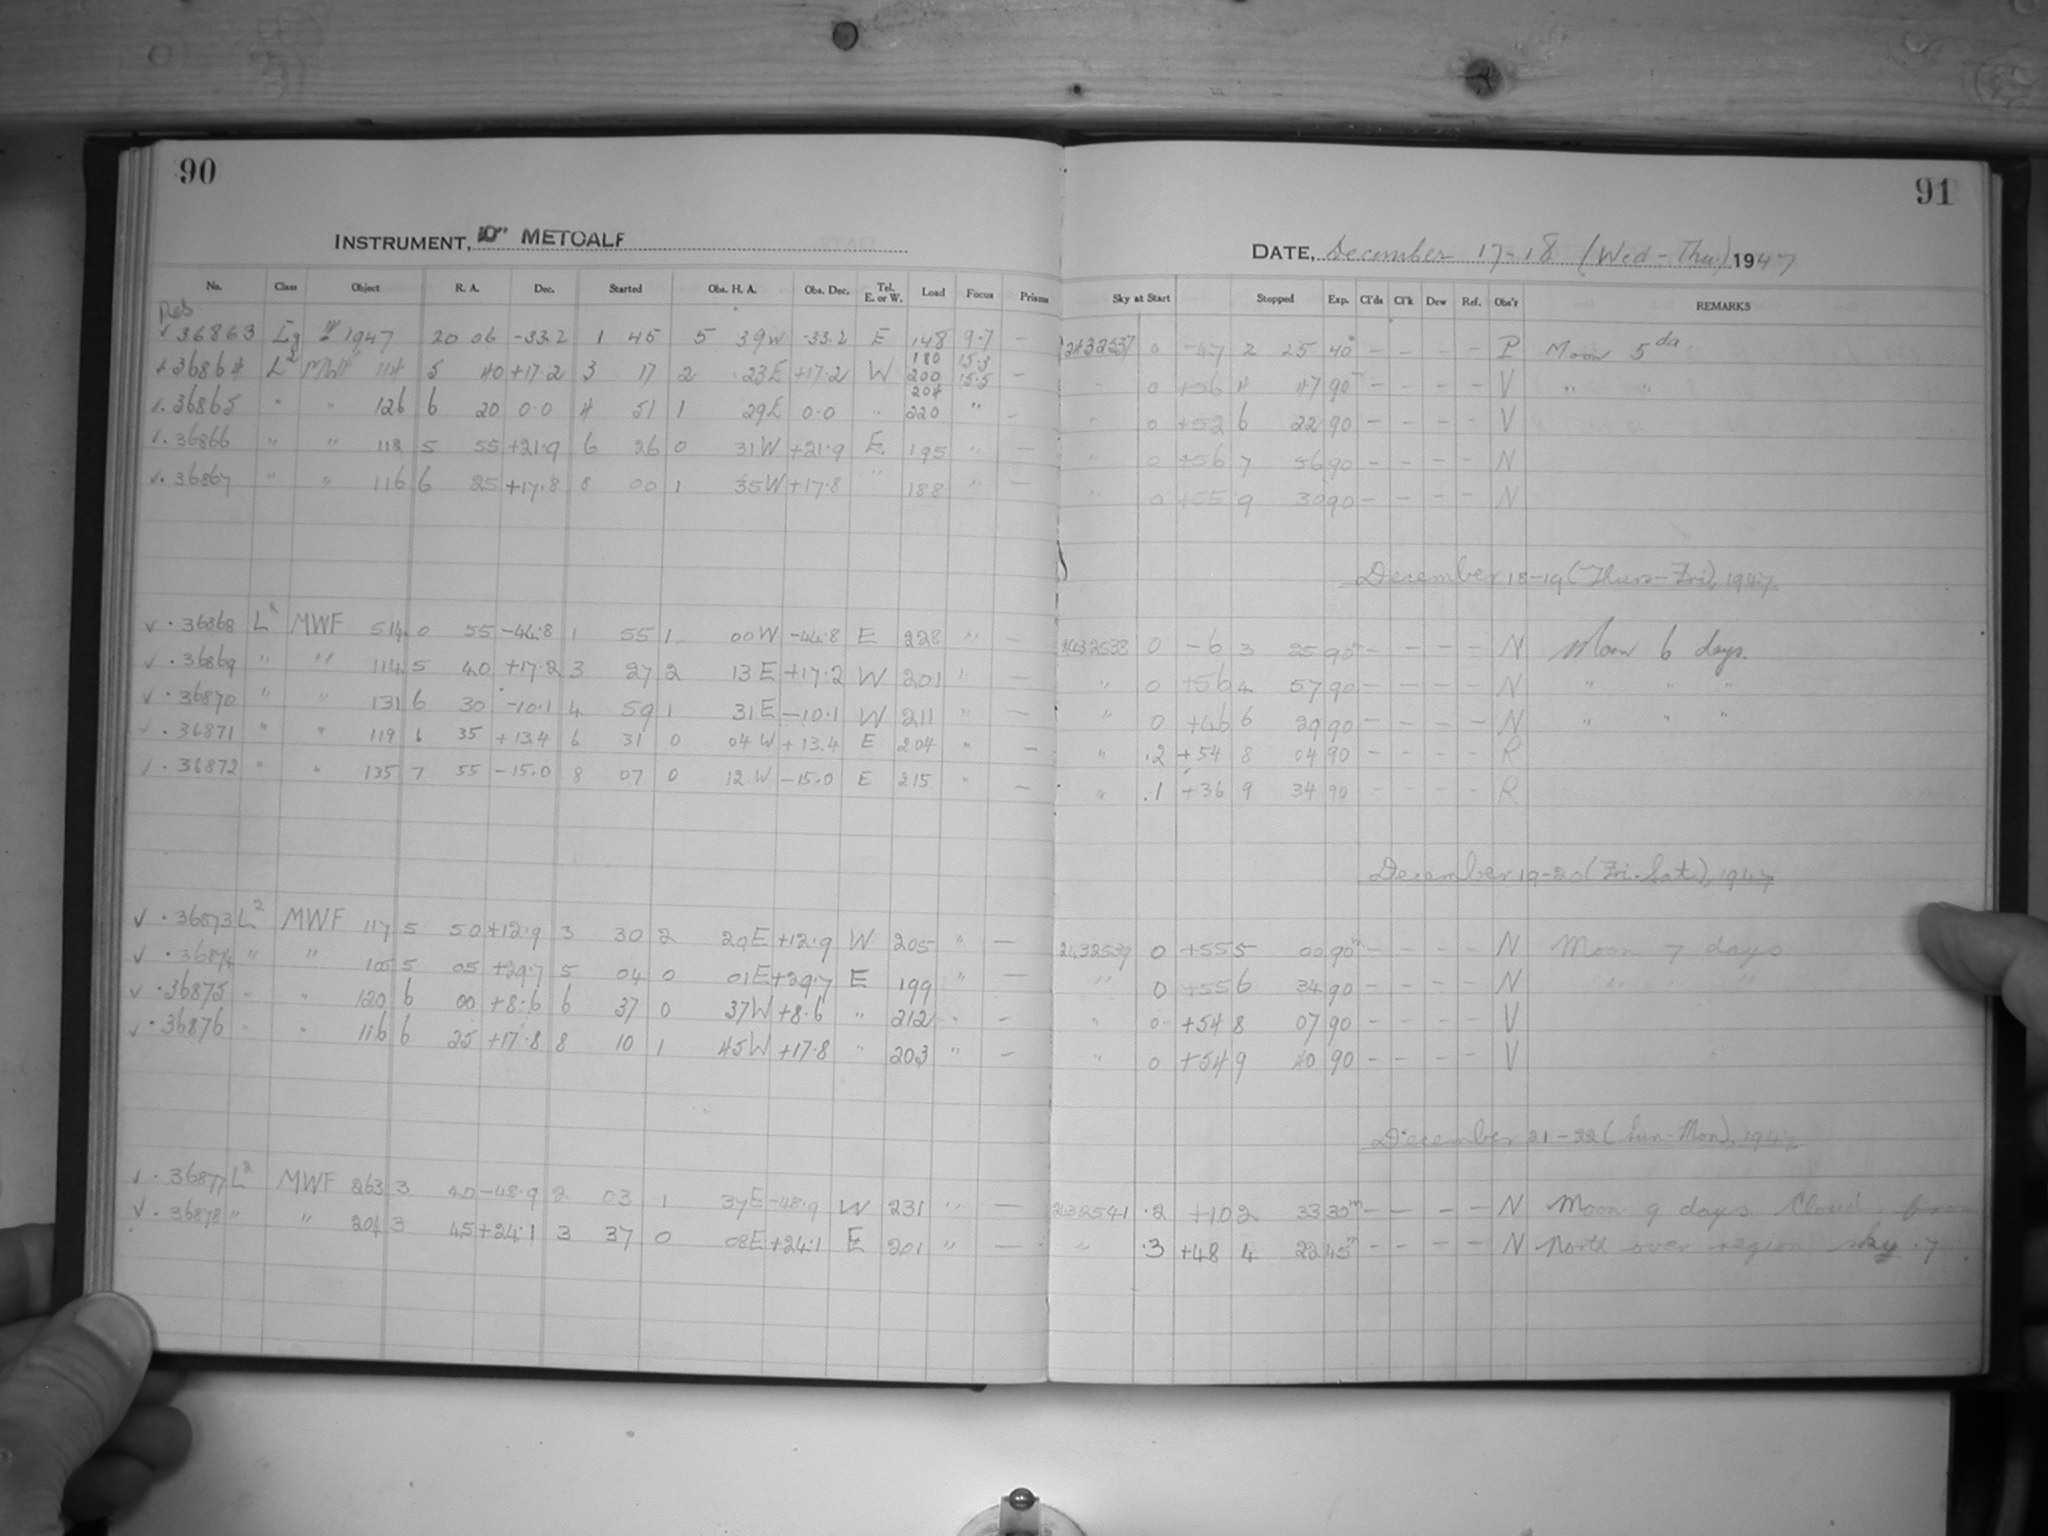 90
INSTRUMENT, 10" METCALF
No. Class Object R. A. Dec. Started Obs. H. A. Obs. Dec. Tel. E. or W. Load Focus Prisms
36863 1947 20 06 -33.2 1 45 5 39W -33.2 E 148 9.7 -
180 15.3
36864 L2 MWF 114 5 40 +17.2 3 17 2 23E +17.2 W 200 15.5 -
204
36865 " " 126 6 20 0.0 4 51 1 29E 0.0 " 220 " -
36866 " " 112 5 55 +21.9 6 26 0 31W +21.9 E 195 " -
36867 " " 116 6 25 +17.8 8 00 1 35W +17.8 " 188 " -
36868 L2 MWF 514 0 55 -44.8 1 55 1 00W -44.8 E 228 " -
36869 " " 114 5 40 +17.2 3 27 2 13E +17.2 W 201 " -
36870 " " 131 6 30 -10.1 4 59 1 31E -10.1 W 211 " -
36871 " " 119 6 35 +13.4 6 31 0 04W +13.4 E 204 " -
36872 " " 135 7 55 -15.0 8 07 0 12W -15.0 E 215 " -
36873 L2 MWF 117 5 50 +12.9 3 30 2 29E +12.9 W 205 " -
36874 " " 105 5 05 +29.7 5 04 0 01E +29.7 E 199 " -
36875 " " 120 6 00 +8.6 6 37 0 37W +8.6 " 212 " -
36876 " " 116 6 25 +17.8 8 10 1 45W +17.8 " 203 " -
36877 L2 MWF 263 3 40 -48.9 2 03 1 37E -48.9 W 231 " -
36878 " " 204 3 45 +24.1 3 37 0 08E +24.1 E 201 " -
91
DATE, December 17-18 (Wed-Thu.) 1947
Sky at Start Stopped Exp. Cl'ds Cl'k Dew Ref. Obs'r REMARKS
2432537 0 -47 2 25 40 - - - - P Moon 5 da
" 0 +56 4 47 90 - - - - V " "
" 0 +52 6 22 90 - - - - V
" 0 +56 7 56 90 - - - - N
" 0 +55 9 30 90 - - - - N
December 18-19 (Thurs-Fri), 1947.
2432538 0 -6 3 25 90m - - - - N Moon 6 days.
" 0 +56 4 57 90 - - - - N " " "
" 0 +46 6 29 90 - - - - N " " "
" .2 +54 8 04 90 - - - - R
" .1 +36 9 34 90 - - - - R
December 19-20 (Fri.-Sat.), 1947
2432539 0 +55 5 00 90m - - - - N Moon 7 days
" 0 +55 6 34 90 - - - - N " " "
" 0 +54 8 07 90 - - - - V
" 0 +54 9 40 90 - - - - V
December 21-22 (Sun-Mon), 1947
2432541 .2 +10 2 33 30m - - - - N Moon 9 days. Clouds from
" .3 +48 4 22 45m - - - - N North over region sky .7